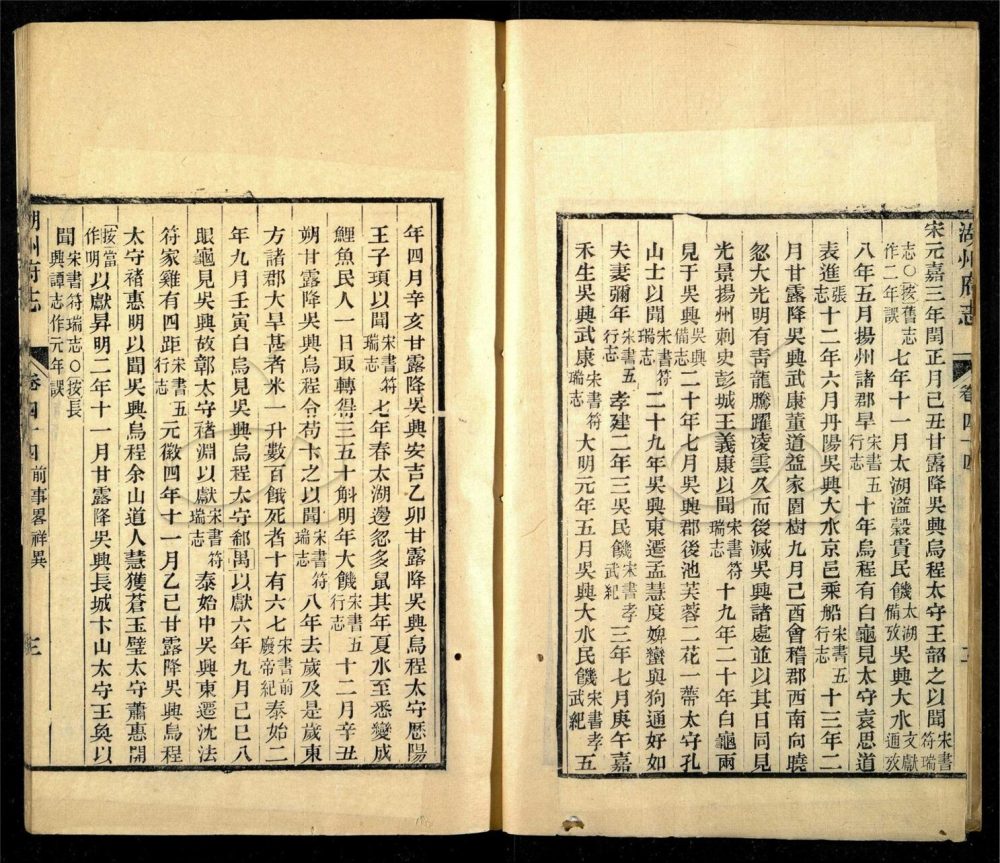 湖州府志 卷四十四
宋元嘉三年閏正月己丑甘露降吳興烏程太守王韶之以聞宋書符瑞
志○按舊志作二年誤七年十一月太湖溢穀貴民饑太湖備攷吳興大水文獻通攷
八年五月揚州諸郡旱宋書五行志十年烏程有白龜見太守袁思道
表進張志十二年六月丹陽吳興大水京邑乘船宋書五行志十三年二
月甘露降吳興武康董道益家園樹九月己酉會稽郡西南向曉
忽大光明有青龍騰躍凌雲久而後滅吳興諸處並以其日同見
光景揚州刺史彭城王義康以聞宋書符瑞志十九年二十年白龜兩
見于吳興吳興備志二十年七月吳興郡後池芙蓉二花一蒂太守孔
山士以聞宋書符瑞志二十九年吳興東遷孟慧度婢蠻與狗通好如
夫妻彌年宋書五行志孝建二年三吳民饑宋書孝武紀三年七月庚午嘉
禾生吳興武康宋書符瑞志大明元年五月吳興大水民饑宋書孝武紀五
年四月辛亥甘露降吳興安吉乙卯甘露降吳興烏程太守歷陽
王子頊以聞宋書符瑞志七年春太湖邊忽多鼠其年夏水至悉變成
鯉魚民人一日取轉得三五十斛明年大饑宋書五行志十二月辛丑
朔甘露降吳興烏程令苟卞之以聞宋書符瑞志八年去歲及是歲東
方諸郡大旱甚者米一升數百餓死者十有六七宋書前廢帝紀泰始二
年九月壬寅白烏見吳興烏程太守郗禺以獻六年九月己巳八
眼龜見吳興故鄣太守褚淵以獻宋書符瑞志泰始中吳興東遷沈法
符家雞有四距宋書五行志元徽四年十一月乙巳甘露降吳興烏程
太守褚惠明以聞吳興烏程余山道人慧獲蒼玉璧太守蕭惠開
按當作明以獻昇明二年十一月甘露降吳興長城卞山太守王奐以
聞宋書符瑞志○按長興譚志作元年誤
湖州府志 卷四十四 前事畧祥異 三